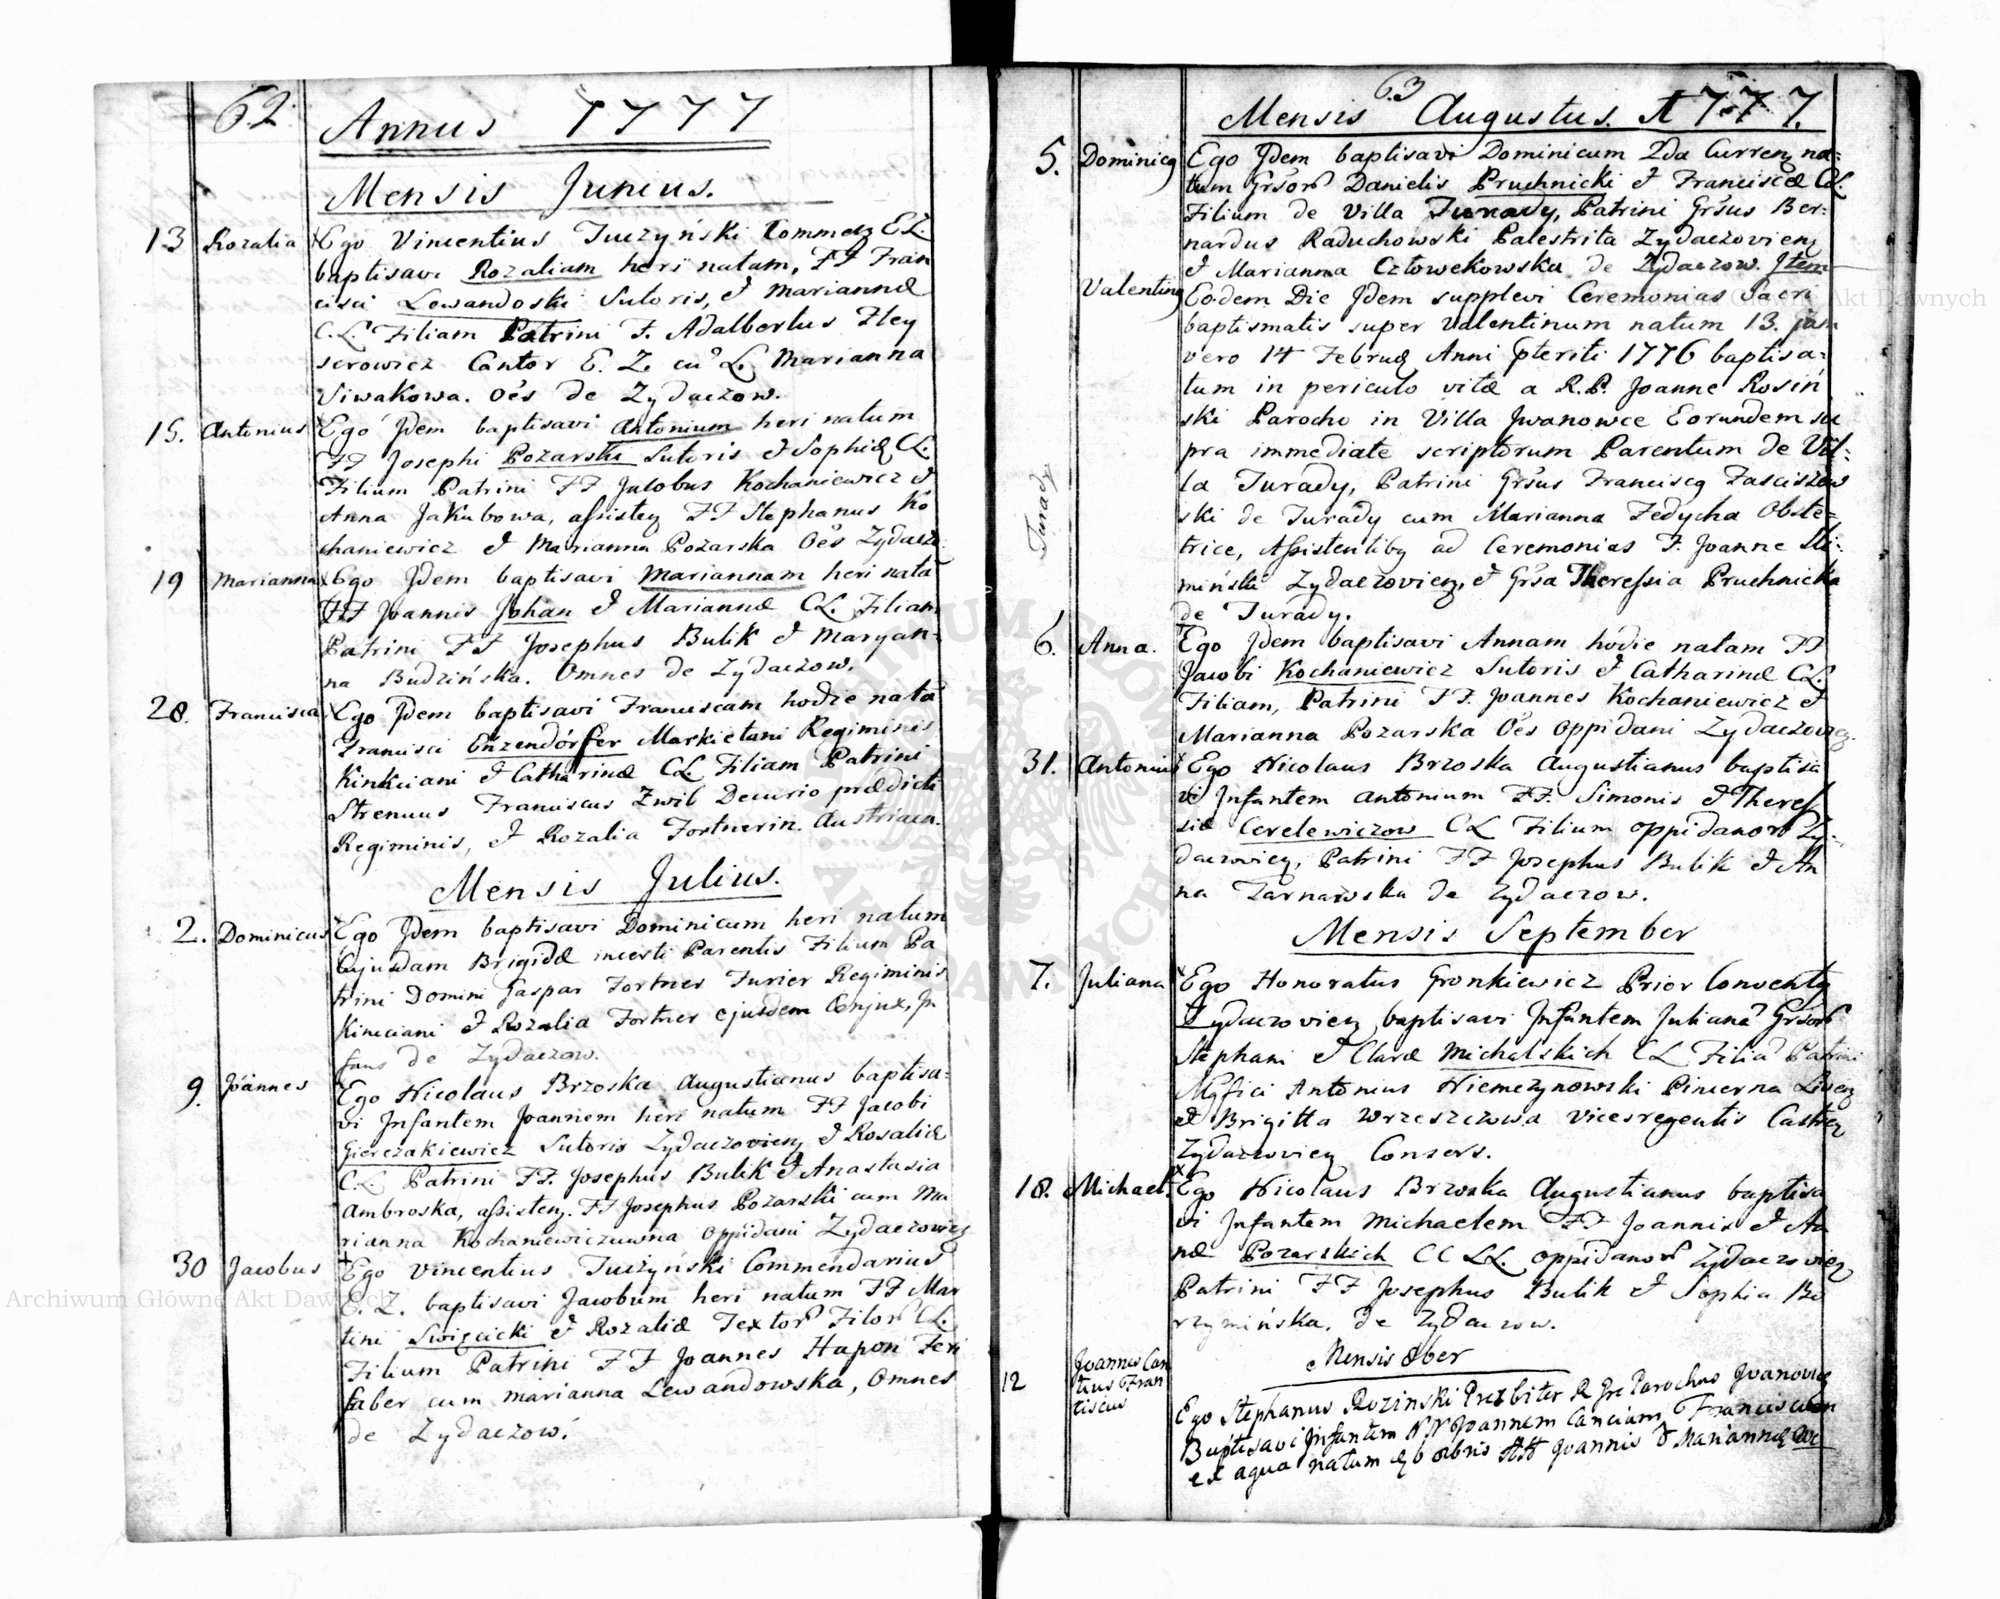 62
Annus 1777
Mensis Junius.
13 Rozalia Ego Vincentius Tuczyński Commen EZ.
baptisavi Rozaliam heri natam, FF Fran
cisci Lewandoski Sutoris, et Mariannæ
C.L. Filiam Patrini F. Adalbertus Fley
serowicz Cantor E. Z. L. Marianna
Siwakowa. oes de Zydaczow.
15. Antonius Ego Jdem baptisavi Antonium heri natum
FF Josephi Pozarski Sutoris et Sophiæ CL.
Filium Patrini FF Jacobus Kochaniewicz et
Anna Jakubowa, assisten FF Stephanus Ko
chaniewicz et Marianna Pozarska Oes Zydacz
19 Marianna Ego Jdem baptisavi Mariannam heri nata
FF Joannis Johan et Mariannæ CL. Filiam
Patrini FF Josephus Bulik et Maryan=
na Budzińska. Omnes de Zydaczow.
28. Francisca Ego Jdem baptisavi Franciscam hodie nata
Francisci Enzendörfer Markietani Regiminis
Kinkciani et Catharinæ CL. Filiam Patrini
Strenuus Franciscus Zwil Decurio prædicti
Regiminis, et Rozalia Fortnerin
Mensis Julius.
2. Dominicus Ego Jdem baptisavi Dominicum heri natum
Cujusdam Brigidæ incerti Parentis Filium Pa
trini Domini Gaspar Fortner Furier Regiminis
Kinciani et Rozalia Fortner ejusdem Conjux, In
fans de Zydaczow.
9. Joannes Ego Nicolaus Brzoska Augustianus baptisa=
vi Infantem Joannem heri natum FF Jacobi
Gierczakiewicz Sutoris Zydaczovien et Rosaliæ
C.L. Patrini FF. Josephus Bulik et Anastasia
Ambroska, assisten. FF Josephus Pozarski cum Ma
rianna Kochaniewiczuwna oppidani Zydaczowien
30 Jacobus Ego Vincentius Tuczyński Commendarius
E. Z. baptisavi Jacobum heri natum FF Mar
tini Swięcicki et Rozaliæ Textor CL.
Filium Patrini FF Joannes Hapon Feri
faber cum Marianna Lewandowska, Omnes
de Zydaczow.
63
Mensis Augustus. A 1777.
5. Dominicq Ego Jdem baptisavi Dominicum 2da Curren na=
tum Danielis Pruchnicki et Franciscæ CL.
Filium de Villa Turady, Patrini Ber=
nardus Raduchowski Palestrita Zydaczovien
et Marianna Człowekowska de Zydaczow. Jtem
Valentinq Eodem Die Jdem supplevi Ceremonias Sacri
baptismatis super Valentinum natum 13. jan
vero 14 Anni 1776 baptisa=
tum in periculo vitæ a R.P. Joanne Rosiń
ski Parocho in Villa Jwanowce Eorundem su
pra immediate scriptorum Parentum de Vil=
la Turady, Patrini Franciscq
ski de Turady cum Marianna Fedycha Obste=
trice, Assistentibq ad Ceremonias F. Joanne
miński Zydaczovien, et Theressia Pruchnicka
de Turady.
Turady
6. Anna. Ego Jdem baptisavi Annam hodie natam FF
Jacobi Kochaniewicz Sutoris et Catharinæ CL.
Filiam, Patrini FF. Joannes Kochaniewicz et
Marianna Pozarska Oes oppidani Zydaczowien.
31. Antonius Ego Nicolaus Brzoska Augustianus baptisa
vi Infantem Antonium FF. Simonis et Theres
siæ Cerelewiczow CL Filium oppidanor Zy=
daczovien, Patrini FF Josephus Bulik et An
na Tarnawska de Zydaczow.
Mensis September
7. Juliana Ego Honoratus Gronkiewicz Prior Conventq
Zydaczovien baptisavi Infantem Juliana
Stephani et Claræ Michalskich CL Filia Patrini
Antonius Niemczynowski Pincerna
et Brigitta Wrzeszczowa Vicesregentis Castren
Zydaczovien Consors.
18. Michael. Ego Nicolaus Brzoska Augustianus baptisa
vi Infantem Michaelem FF Joannis et An
næ Pozarskich CC LL. oppidanor Zydaczovien
Patrini FF Josephus Bulik et Sophia Bo
rzymińska. de Zydaczow.
Mensis 8ber
12 Joannes Can
tius Fran
ciscus
Ego Stephanus Rozinski Presbiter Parochus
Baptisavi Infantem NN Joannem Cancium, Franciscum
ex aqua natum Joannis et Mariannæ
Archiwum Główne Akt Dawnych
Archiwum Główne Akt Dawnych
ARCHIWUM GŁÓWNE AKT DAWNYCH